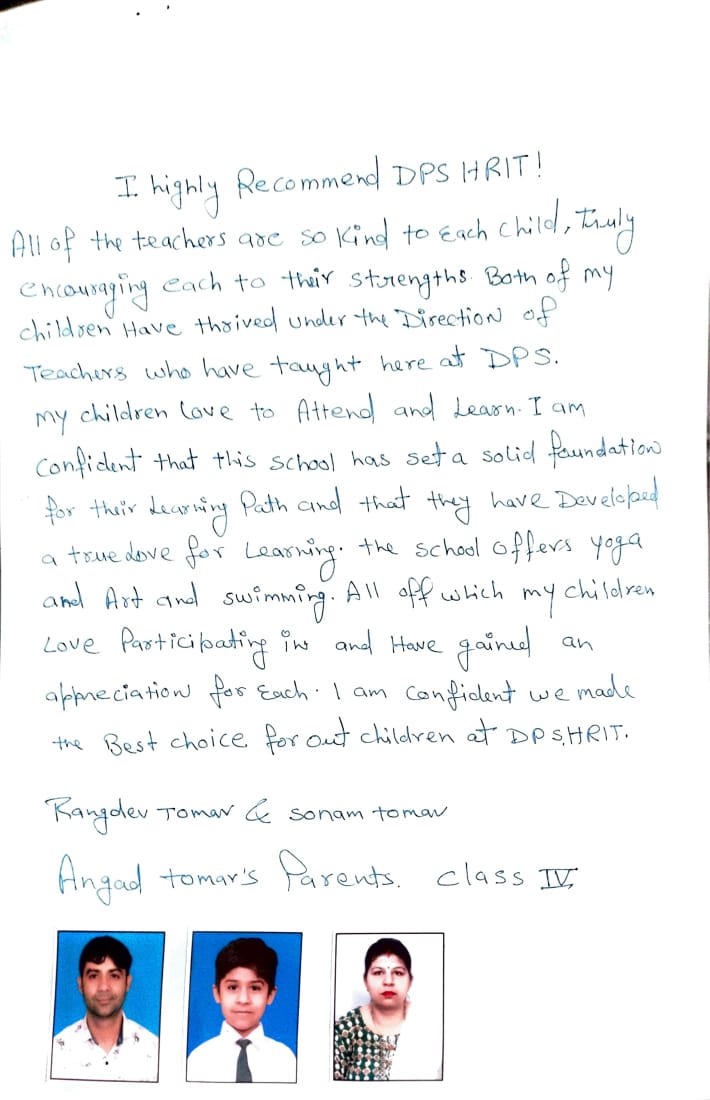 I highly Recommend DPS HRIT!
All of the teachers are so Kind to Each child, Truly
encouraging each to their strengths. Both of my
children Have thrived under the Direction of
Teachers who have taught here at DPS.
my children Love to Attend and Learn. I am
Confident that this school has set a solid foundation
for their Learning Path and that they have Developed
a true Love for Learning. the school offers yoga
and Art and swimming. All off which my children
Love Participating in and Have gained an
appreciation for Each. I am Confident we made
the Best choice for out children at DPS, HRIT.
Rangdev Tomar & Sonam tomar
Angad tomar's Parents. Class IV,